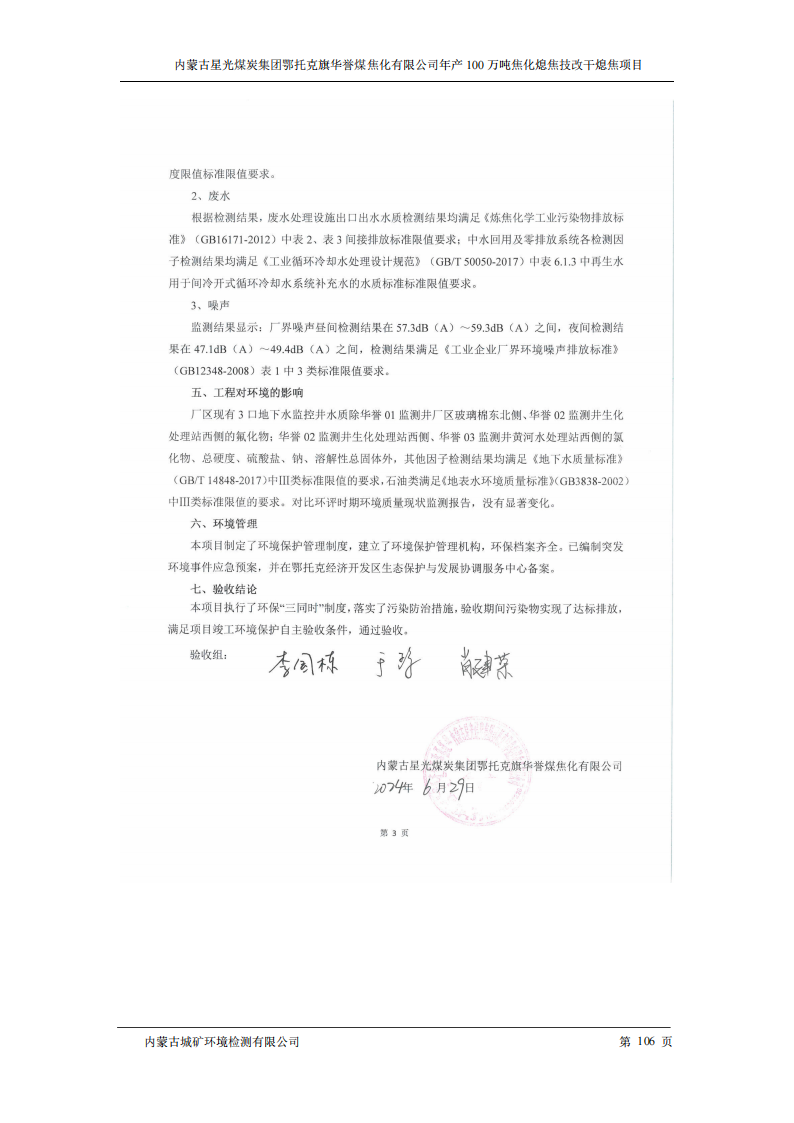 内蒙古星光煤炭集团鄂托克旗华誉煤焦化有限公司年产 100 万吨焦化熄焦技改干熄焦项目
度限值标准限值要求。
2、废水
根据检测结果，废水处理设施出口出水水质检测结果均满足《炼焦化学工业污染物排放标
准》（GB16171-2012）中表 2、表 3 间接排放标准限值要求；中水回用及零排放系统各检测因
子检测结果均满足《工业循环冷却水处理设计规范》（GB/T 50050-2017）中表 6.1.3 中再生水
用于间冷开式循环冷却水系统补充水的水质标准标准限值要求。
3、噪声
监测结果显示：厂界噪声昼间检测结果在 57.3dB（A）～59.3dB（A）之间，夜间检测结
果在 47.1dB（A）～49.4dB（A）之间，检测结果满足《工业企业厂界环境噪声排放标准》
（GB12348-2008）表 1 中 3 类标准限值要求。
五、工程对环境的影响
厂区现有 3 口地下水监控井水质除华誉 01 监测井厂区玻璃棉东北侧、华誉 02 监测井生化
处理站西侧的氟化物；华誉 02 监测井生化处理站西侧、华誉 03 监测井黄河水处理站西侧的氯
化物、总硬度、硫酸盐、钠、溶解性总固体外，其他因子检测结果均满足《地下水质量标准》
（GB/T 14848-2017)中III类标准限值的要求，石油类满足《地表水环境质量标准》(GB3838-2002）
中III类标准限值的要求。对比环评时期环境质量现状监测报告，没有显著变化。
六、环境管理
本项目制定了环境保护管理制度，建立了环境保护管理机构，环保档案齐全。已编制突发
环境事件应急预案，并在鄂托克经济开发区生态保护与发展协调服务中心备案。
七、验收结论
本项目执行了环保“三同时”制度，落实了污染防治措施，验收期间污染物实现了达标排放，
满足项目竣工环境保护自主验收条件，通过验收。
验收组： 李国栋 于 肖建荣
内蒙古星光煤炭集团鄂托克旗华誉煤焦化有限公司
2024年 6月29日
第 3 页
内蒙古城矿环境检测有限公司 第 106 页